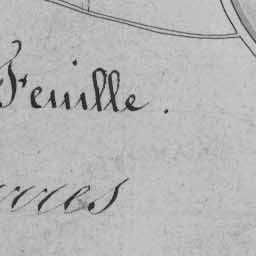 Feuille.
rres